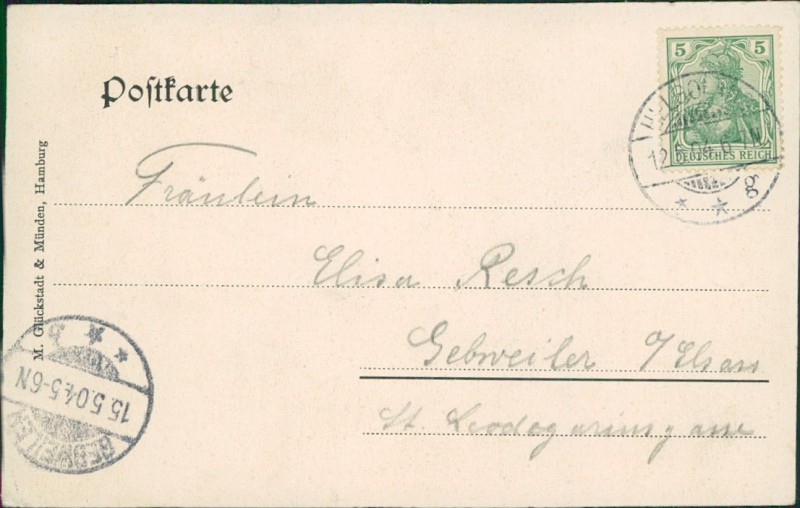 Postkarte
5 5
DEUTSCHES REICH
12.5.04
g
M. Glückstadt & Münden, Hamburg
Fräulein
Elisa Resch
Gebweiler
St. Leodogariusgasse
GEBWEILER
15.5.04.5-6N